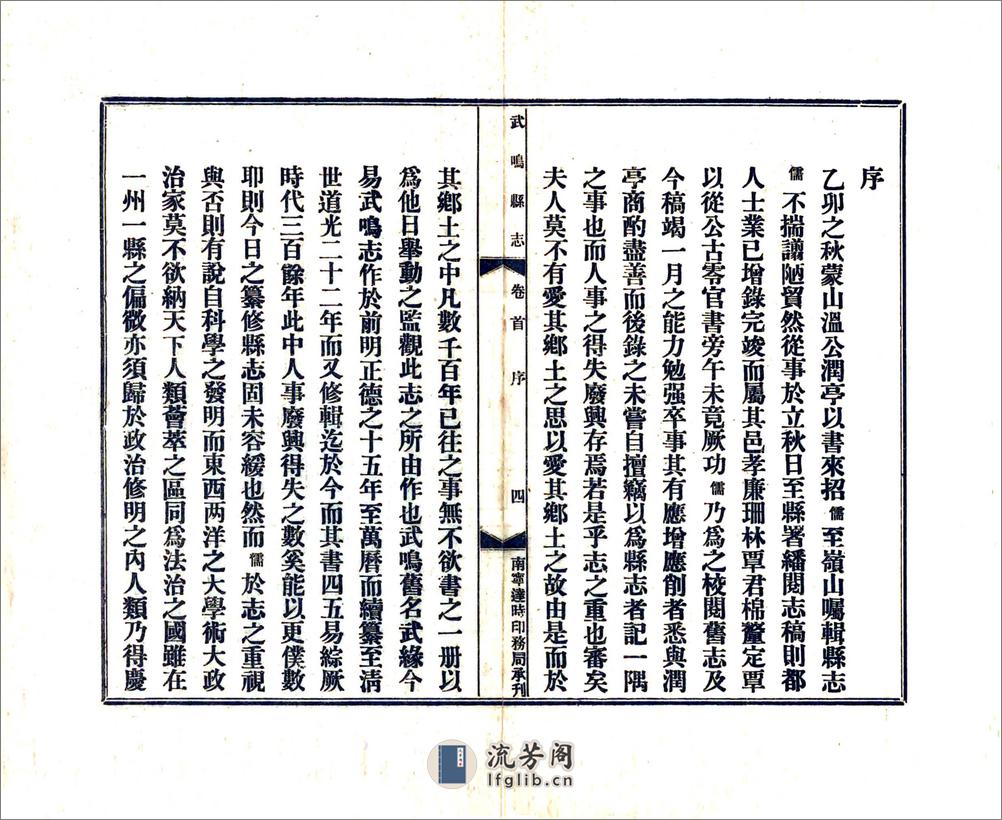 序
乙卯之秋蒙山溫公潤亭以書來招儒至嶺山囑輯縣志
儒不揣譾陋貿然從事於立秋日至縣署繙閱志稿則都
人士業已增錄完竣而屬其邑孝廉珊林覃君棉釐定覃
以從公古零官書旁午未竟厥功儒乃爲之校閱舊志及
今稿竭一月之能力勉强卒事其有應增應削者悉與潤
亭商酌盡善而後錄之未嘗自擅竊以爲縣志者記一隅
之事也而人事之得失廢興存焉若是乎志之重也審矣
夫人莫不有愛其鄉土之思以愛其鄉土之故由是而於
武鳴縣志
卷首
序
四
南寧達時印務局承刋
其鄉土之中凡數千百年已往之事無不欲書之一册以
爲他日舉動之監觀此志之所由作也武鳴舊名武緣今
易武鳴志作於前明正德之十五年至萬曆而續纂至淸
世道光二十二年而又修輯迄於今而其書四五易綜厥
時代三百餘年此中人事廢興得失之數奚能以更僕數
耶則今日之纂修縣志固未容緩也然而儒於志之重視
與否則有說自科學之發明而東西两洋之大學術大政
治家莫不欲納天下人類薈萃之區同爲法治之國雖在
一州一縣之偏微亦須歸於政治修明之內人類乃得慶
流芳阁
lfglib.cn